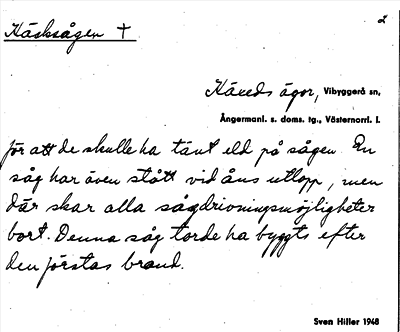 2
Käcksågen †
Käxeds ägor, Vibyggerå sn,
Ångermanl. s. doms. tg., Västernorrl. l.
för att de skulle ha tänt eld på sågen. En
såg har även stått vid åns utlopp, men
där skar alla sågdrivningsmöjligheter
bort. Denna såg torde ha byggts efter
den förstas brand.
Sven Hiller 1948